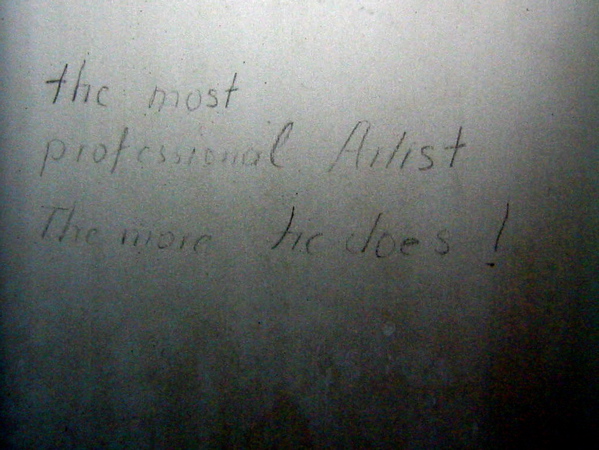 the most
professional Artist
The more he does !